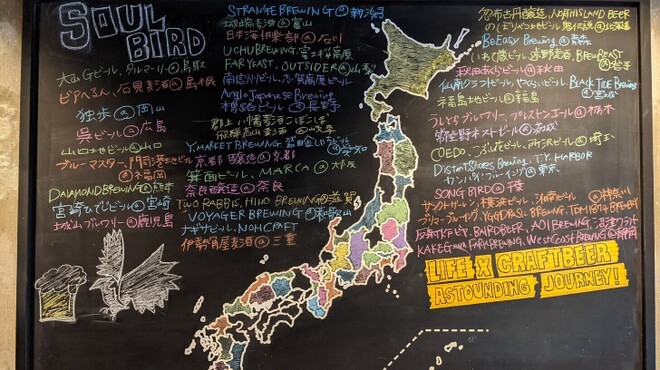 SOUL
BIRD
大山Gビール、タルマーリー@鳥取
ビアへるん、石見麦酒@島根
独歩@岡山
呉ビール@広島
山口地ビール@山口
ブルーマスター、門司港地ビール
@福岡
DAIAMOND BREWING@熊本
宮崎ひでじビール@宮崎
城山ブルワリー@鹿児島
STRANGE BREWING@新潟
城端麦酒@富山
日本海倶楽部@石川
UCHU BREWING、富士桜高原
FAR YEAST, OUTSIDER@山梨
南信州ビール、志賀高原ビール
Anglo Japanese Brewing
木曽路ビール@長野
郡上八幡麦酒こぼこぼ
飛騨高山麦酒@岐阜
Y.MARKET BREWING
京都醸造@京都
箕面ビール、MARCA@大阪
奈良醸造@奈良
TWO RABBIS, HINO BREWING@滋賀
VOYAGER BREWING@和歌山
ナギサビール、NOMCRAFT
伊勢角屋麦酒@三重
忽布古丹醸造、NORTH ISLAND BEER
@北海道
BE EASY Brewing@青森
いわて蔵ビール、遠野麦酒、BREWBEAST
@岩手
秋田あくらビール@秋田
仙南クラフトビール、やくらいビール、BLACK TIDE BREWING
@宮城
福島路ビール@福島
うしとらブルワリー、プレストンエール@栃木
常陸野ネストビール@茨城
COEDO、こぶし花ビール、所沢ビール@埼玉
DISTANT SHORES Brewing、T.Y. HARBOR
@東京
SONG BIRD@千葉
サンクトガーレン、横浜ビール、湘南ビール@神奈川
YGGDRASIL BREWING
反射炉ビヤ、BAIRD BEER, AOI BREWING、沼津クラフト
WEST COAST BREWING@静岡
LIFE X CRAFTBEER
ASTOUNDING JOURNEY!